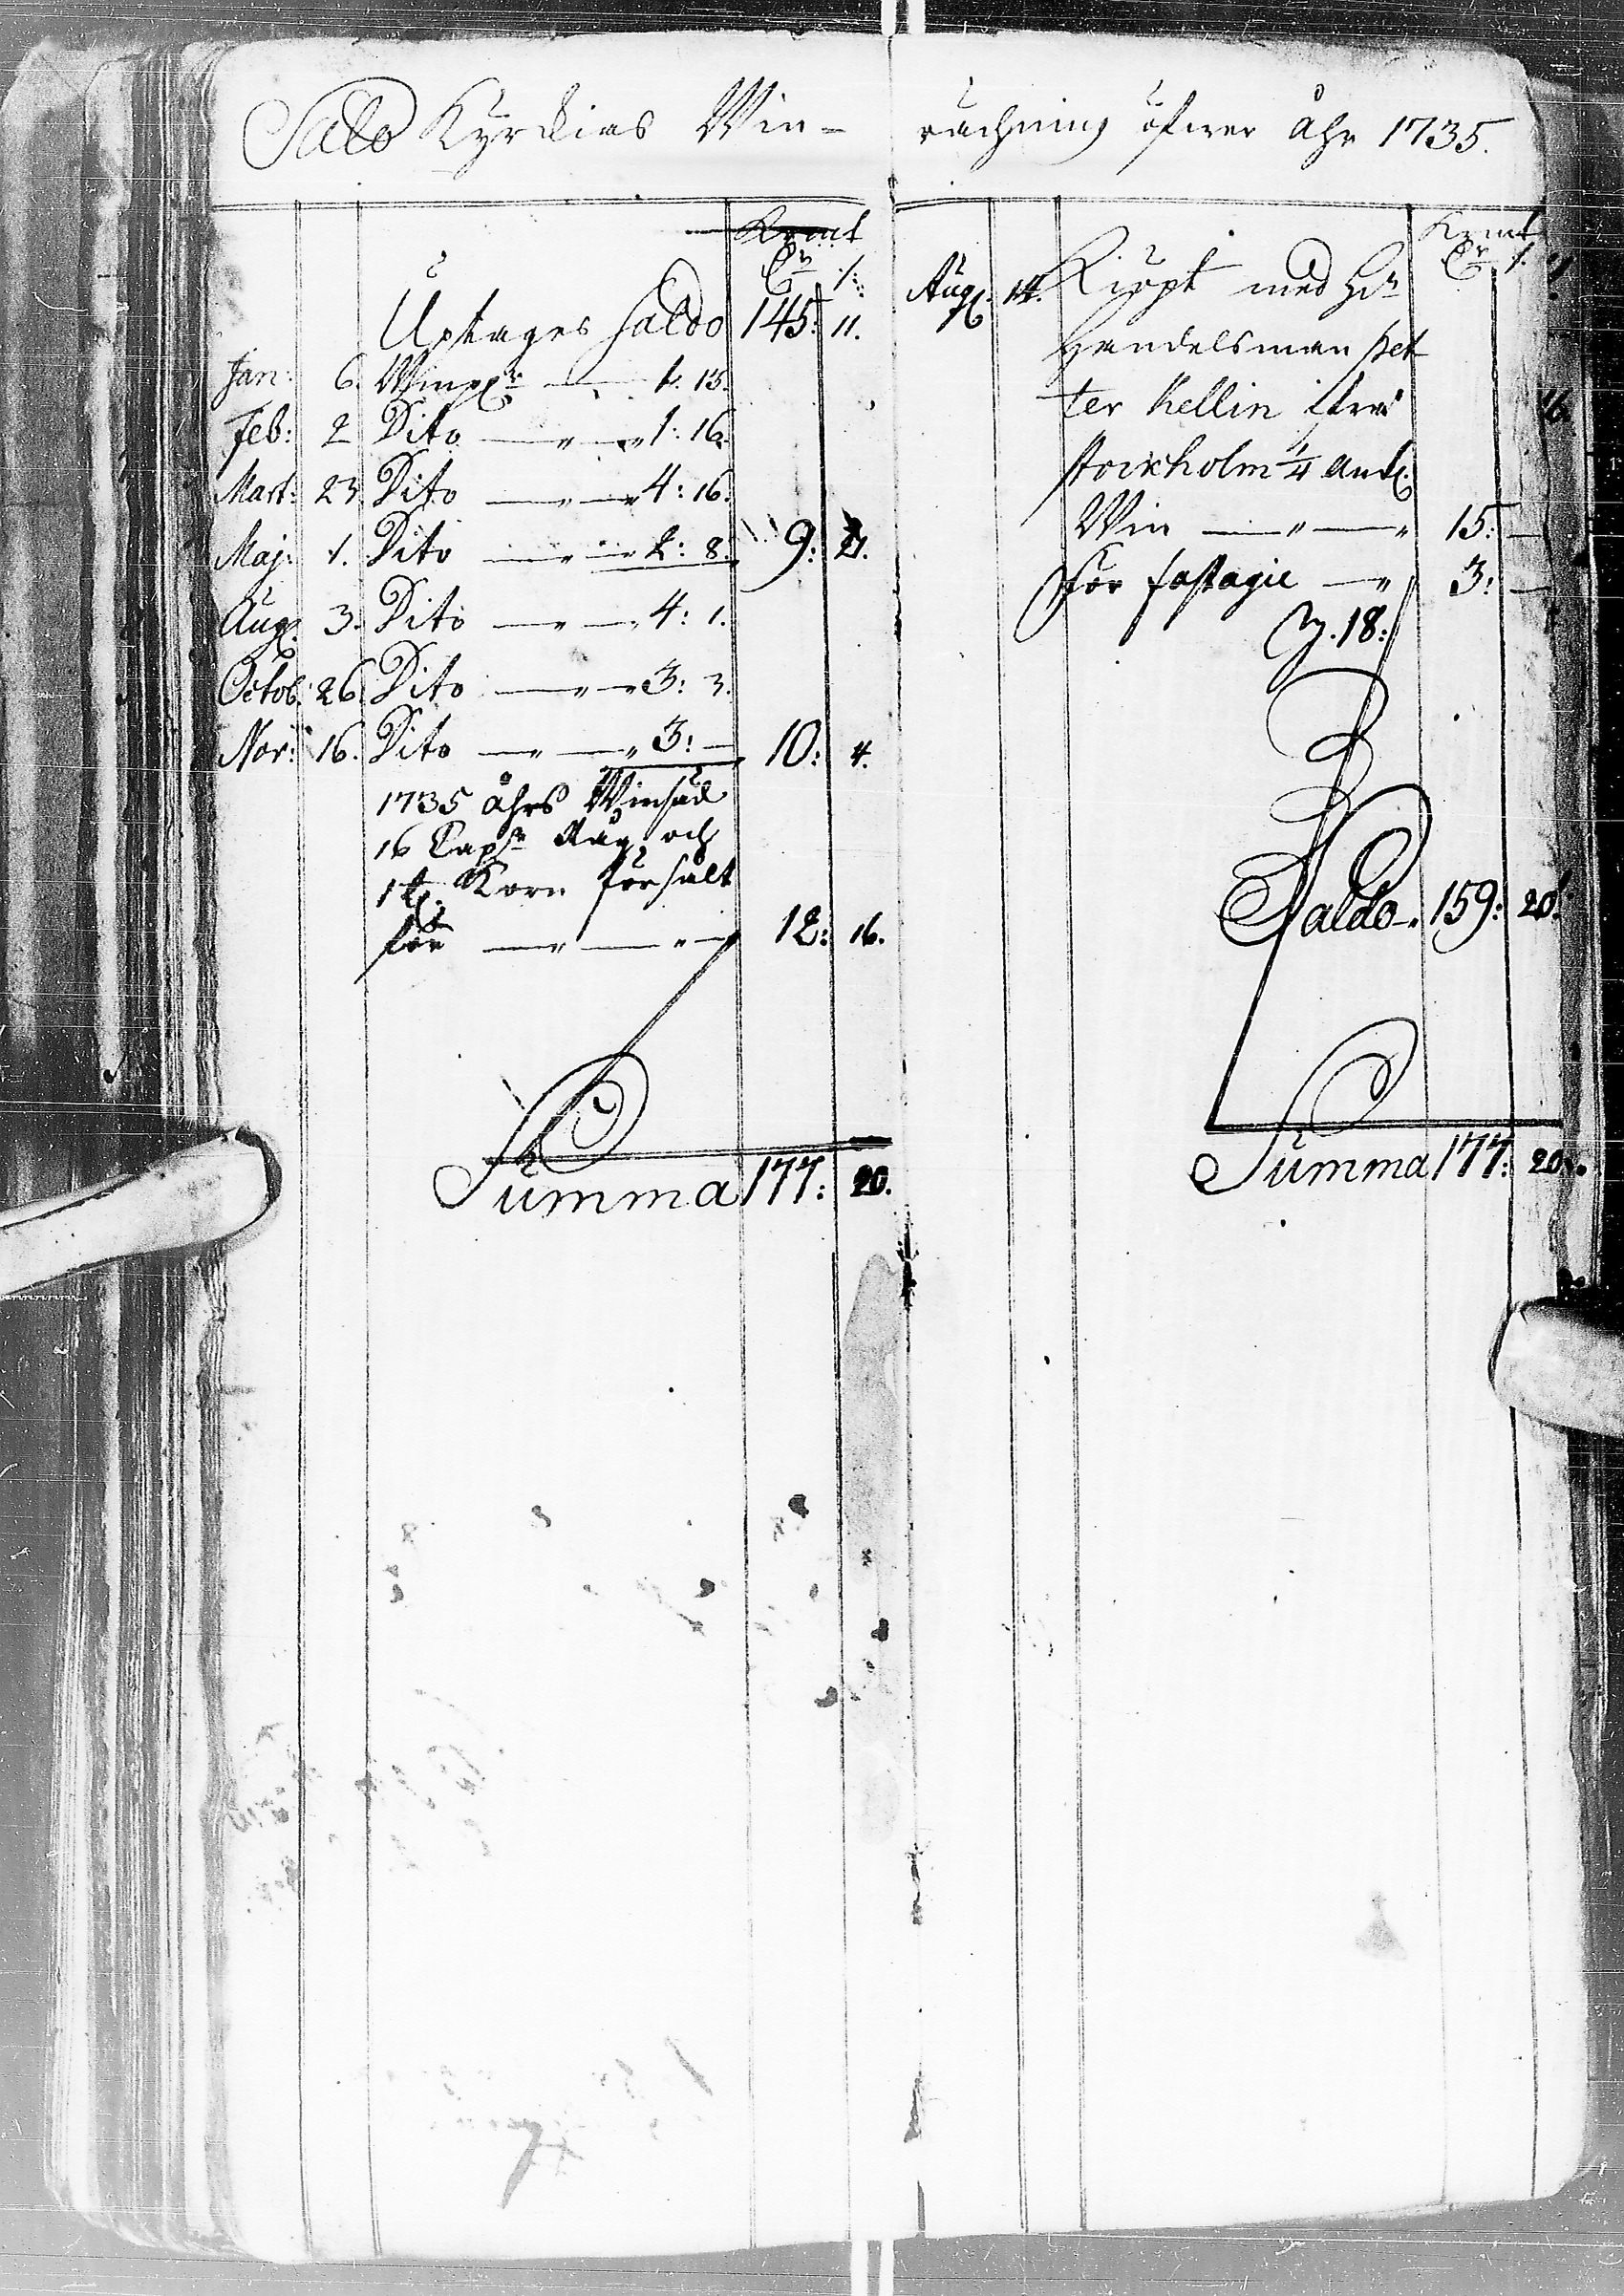 Salo Kyrckias Win=
Krmt
Dr /:
Uptages Saldo 145: 11.
Jan: 6. 1: 13.
Feb: 2 Dito 1: 16.
Mart: 23 Dito 4: 16.
Maj: 1. Dito 2: 8. 9:
Aug: 3. Dito 4: 1.
Octob: 26. Dito 3: 3.
Nov: 16. Dito 3: — 10: 4.
1735 åhrs Winsäd
16 Capr Råg och
1 t. Korn försålt
för 12: 16.
Summa 177: 20.
räckning öfwer åhr 1735.
Krmt
Dr /:
Aug: 14. Kiöpt med Hr
Handelsman Pet
ter Hellin ifrån
Stockholm 1/4 anck:
Win 15: —
För fastagie 3: —
18:
Saldo 159: 20.
Summa 177: 20.